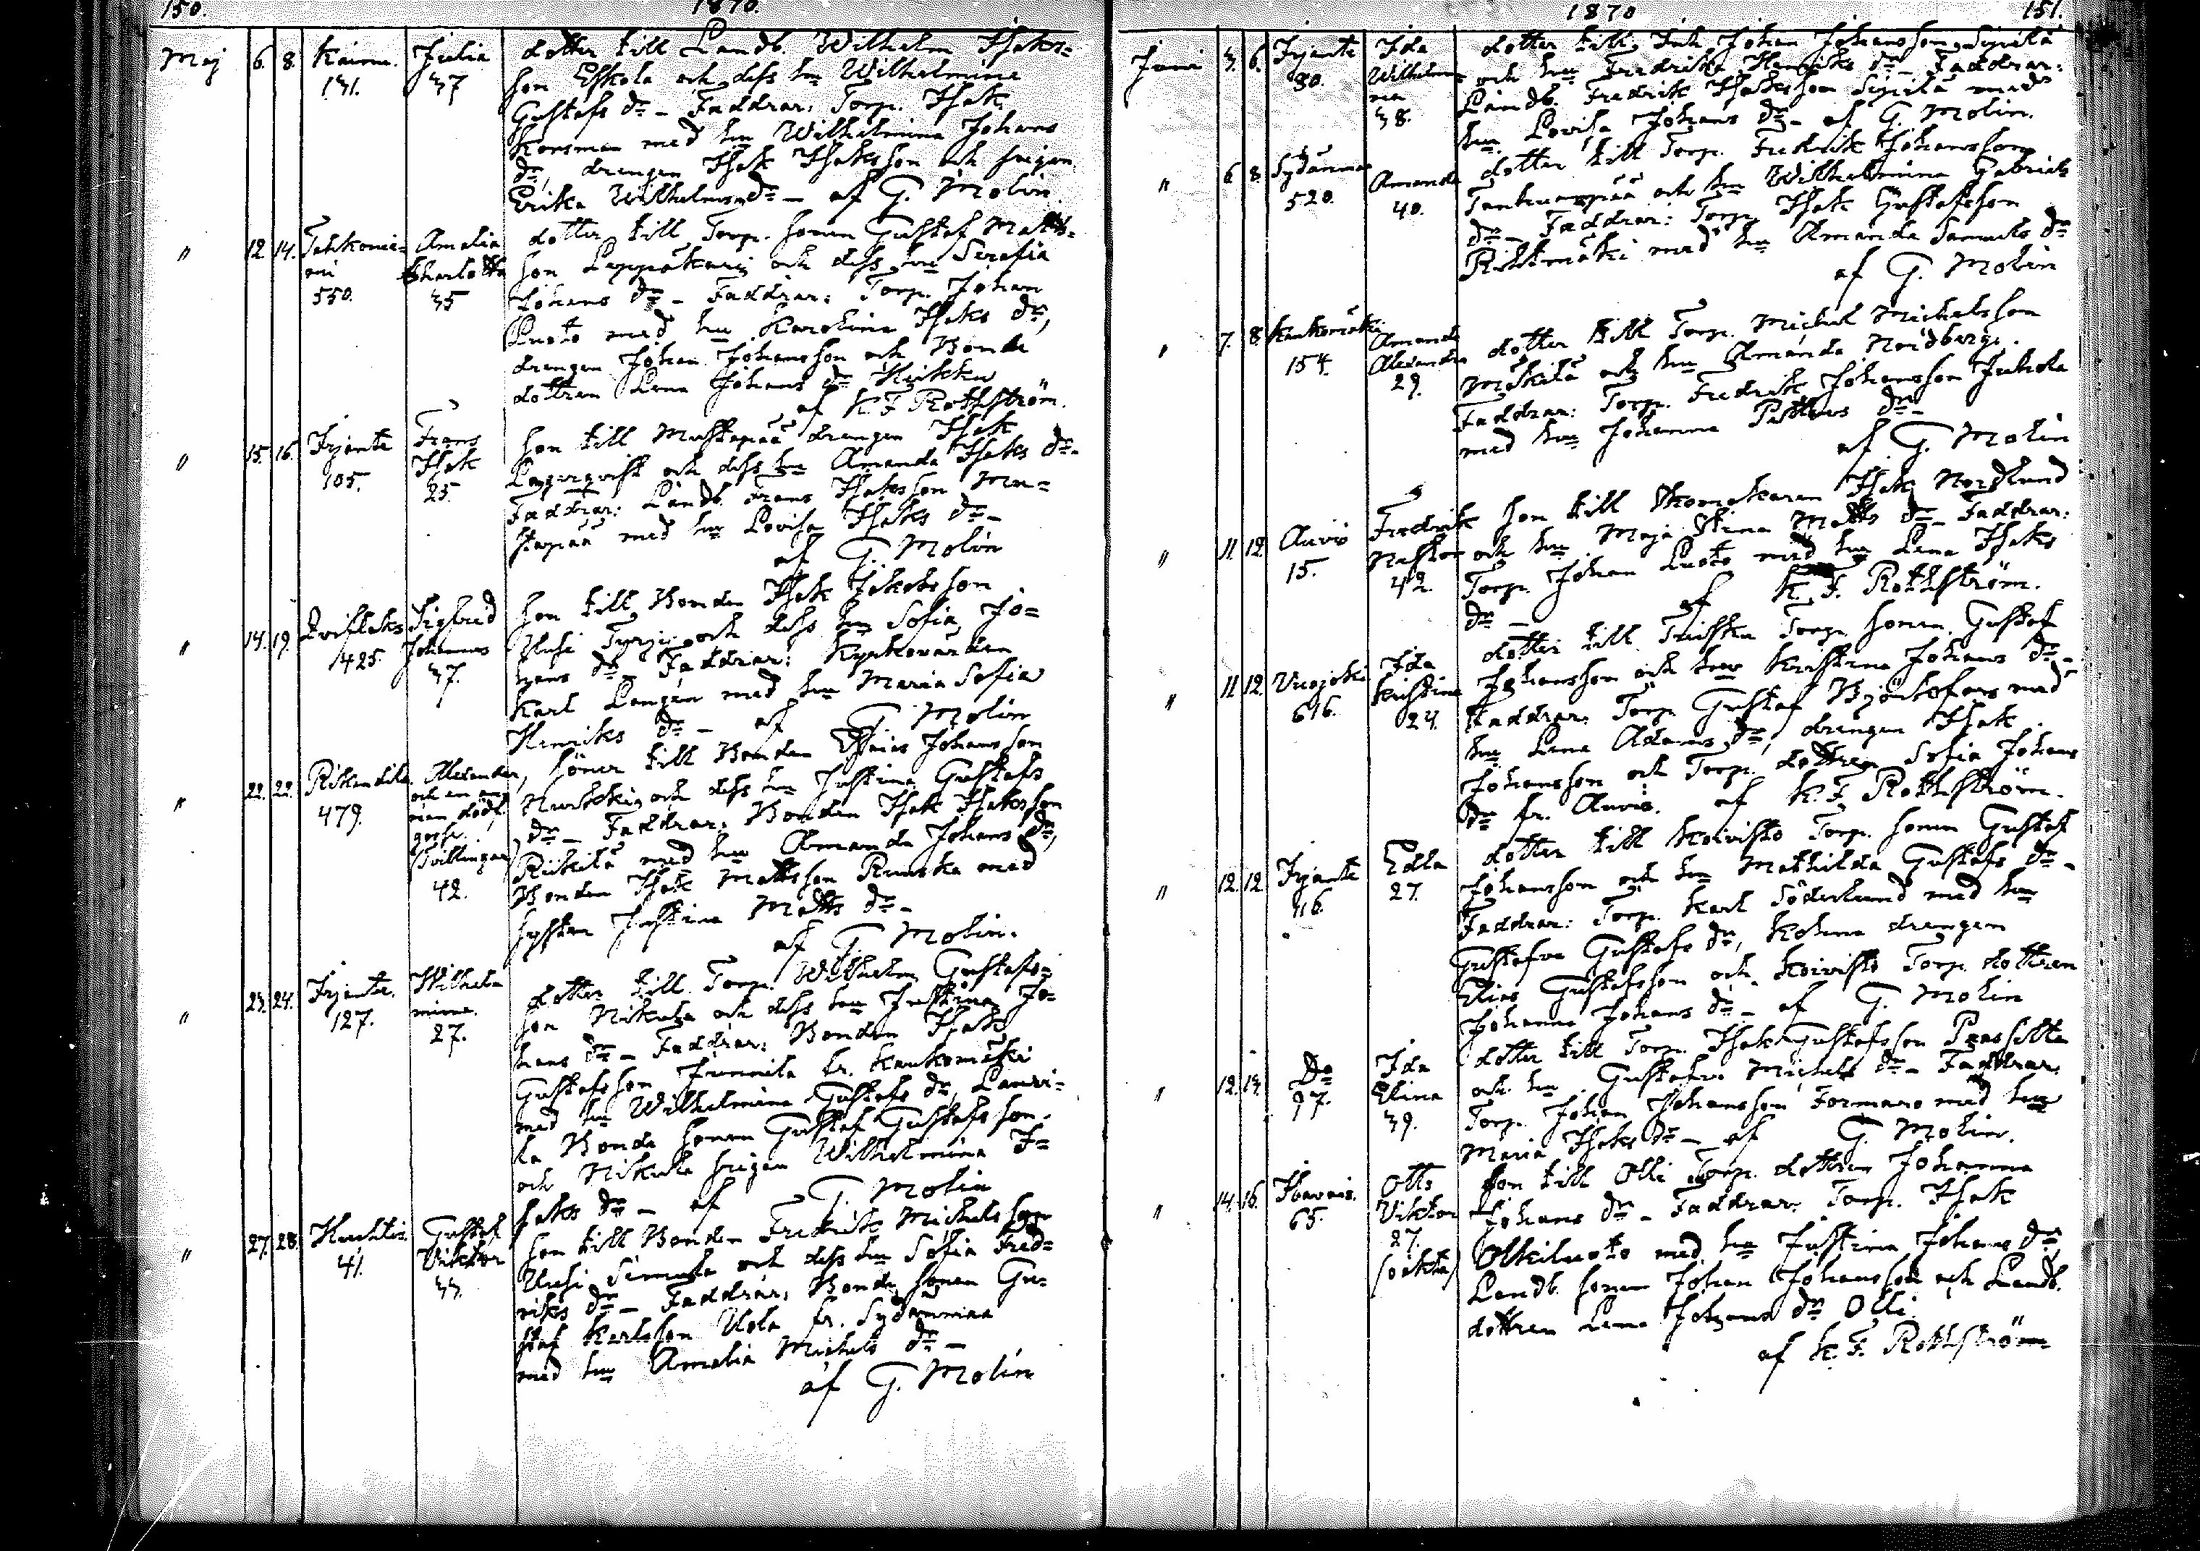 150.
1870.
Maj 6. 8. Kairu. 131. Julia 37
dotter till Landb. Wilhelm Isaks=
son Eskola och dess hu Wilhelmina
Gustafs dr – Faddrar: Torp. Isak
Korsman med hu Wilhelmina Johans
dr, drengen Isak Isaksson och pigan
Erika Wilhelms dr – af G. Molin
" 12. 14. 550. Amalia Charlotta 35
dotter till Torp. sonen Gustaf Matts=
son Leppäkari och dess hu Serafia
Johans dr – Faddrar: Torp. Johan
Luoto med hu Karolina Isaks dr,
drengen Johan Johansson och Bonde
dottren Lena Johans dr Heikku
af K. F. Rothström.
" 15. 16. Irjante 105. Frans Isak 25.
son till Mustapää drengen Isak
Lagerqvist och dess hu Amanda Isaks dr –
Faddrar: Landb. Frans Isaksson Mu=
stapää med hu Lovisa Isaks dr –
af G. Molin
" 14. 19. 425. Sigfrid Johannes 37.
son till Bonden Isak Jakobsson
Uusi och dess hu Sofia Jo=
hans dr – Faddrar: Kyrkovärden
Karl med hu Maria Sofia
Henriks dr – af G. Molin
" 22. 22. 479. Alexander, och en död. gosse. (Tvillingar) 42.
söner till Bonden Johansson
och dess hu Justina Gustafs
dr – Faddrar: Bonden Isak Isaksson
Riikilä med hu Amanda Johans dr,
Bonden Isak Mattsson Runska med
systern Justina Matts dr –
af G. Molin.
" 23. 24. Irjante. 127. Wilhelmina. 27.
dotter till Torp. Wilhelm Gustafs=
son Nikula och dess hu Justina Jo=
hans dr – Faddrar: Bonden Isak
Gustafsson Junnila fr. Kaukomäki
med hu Wilhelmina Gustafs dr, Lauri=
la Bonde sonen Gustaf Gustafsson
och Nikula pigan Wilhelmina I=
saks dr – af G. Molin
" 27. 28. Huhta. 41. Gustaf Viktor 33.
son till Bonden Fredrik Michelsson
Uusi Simula och dess hu Sofia Fred=
riks dr – Faddrar: Bonde sonen Gu=
staf Karlsson Uola fr. Sydänmaa
med hu Amalia Michels dr –
af G. Molin
1870
151.
Juni 3. 6. Irjante 80. Ida Wilhelmina 38.
dotter till Inh. Johan Johansson Sipilä
och hu Fredrika Henriks dr – Faddrar:
Landb. Fredrik Isaksson Sipilä med
hu Lovisa Johans dr – af G. Molin.
" 6 8. Sydänmaa 520. Amanda 40.
dotter till Torp. Fredrik Johansson
och hu Wilhelmina Gabriels
dr – Faddrar: Torp. Isak Gustafsson
med hu Amanda Samuels dr
af G. Molin
" 7. 8 Kaukomäki 154. Amanda Alexandra 29.
dotter till Torp. Michel Michelsson
Mäkilä och hu Amanda Nordberg.
Faddrar: Torp. Fredrik Johansson Juhola
med hu Johanna Petters dr –
af G. Molin
" 11 12. Auvis 15. Fredrik Nestor 42.
son till Skomakaren Isak Nordlund
och hu Maja Stina Matts dr – Faddrar:
Torp. Johan Luoto med hu Lena Isaks
dr – af K. F. Rothström.
" 11 12. Vuojoki 616. Ida Kristina 24.
dotter till Torp. sonen Gustaf
Johansson och hu Kristina Johans dr –
Faddrar: Torp. Gustaf Björklöfors med
hu Lena Adams dr, drengen Isak
Johansson och Torp. dottren Sofia Johans
dr fr. Auvis. af K. F. Rothström.
" 12 12 Irjante 116. Edla 27.
dotter till Koivisto Torp. sonen Gustaf
Johansson och hu Mathilda Gustafs dr –
Faddrar: Torp. Karl Söderlund med hu
Gustafva Gustafs dr, drengen
Elias Gustafsson och Koivisto Torp. dottren
Johanna Johans dr – af G. Molin
" 12. 13. Do 97. Ida Elina 39.
dotter till Torp. Isak Gustafsson
och hu Gustafva Michels dr – Faddrar:
Torp. Johan Johansson Formaro med hu
Maria Isaks dr – af G. Molin.
" 14. 16. 65. Otto Viktor 27. (oäkta)
son till Olli Torp. dottren Johanna
Johans dr – Faddrar: Torp. Isak
Olkiluoto med hu Justina Johans dr,
Landb. sonen Johan Johansson och Landb.
dottren Lena Johans dr Olli
af K. F. Rothström